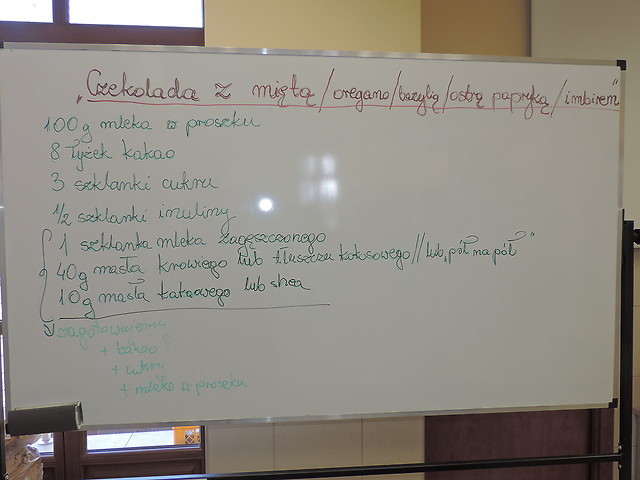 "Czekolada z miętą/oregano/bazylią/ostrą papryką/imbirem"
100g mleka w proszku
8 łyżek kakao
3 szklanki cukru
1/2 szklanki inuliny
1 szklanka mleka zagęszczonego
40g masła krowiego lub tłuszczu kokosowego // lub "pół na pół"
10g masła kakaowego lub shea
zagotowujemy
+ kakao
+ cukry
+ mleko w proszku